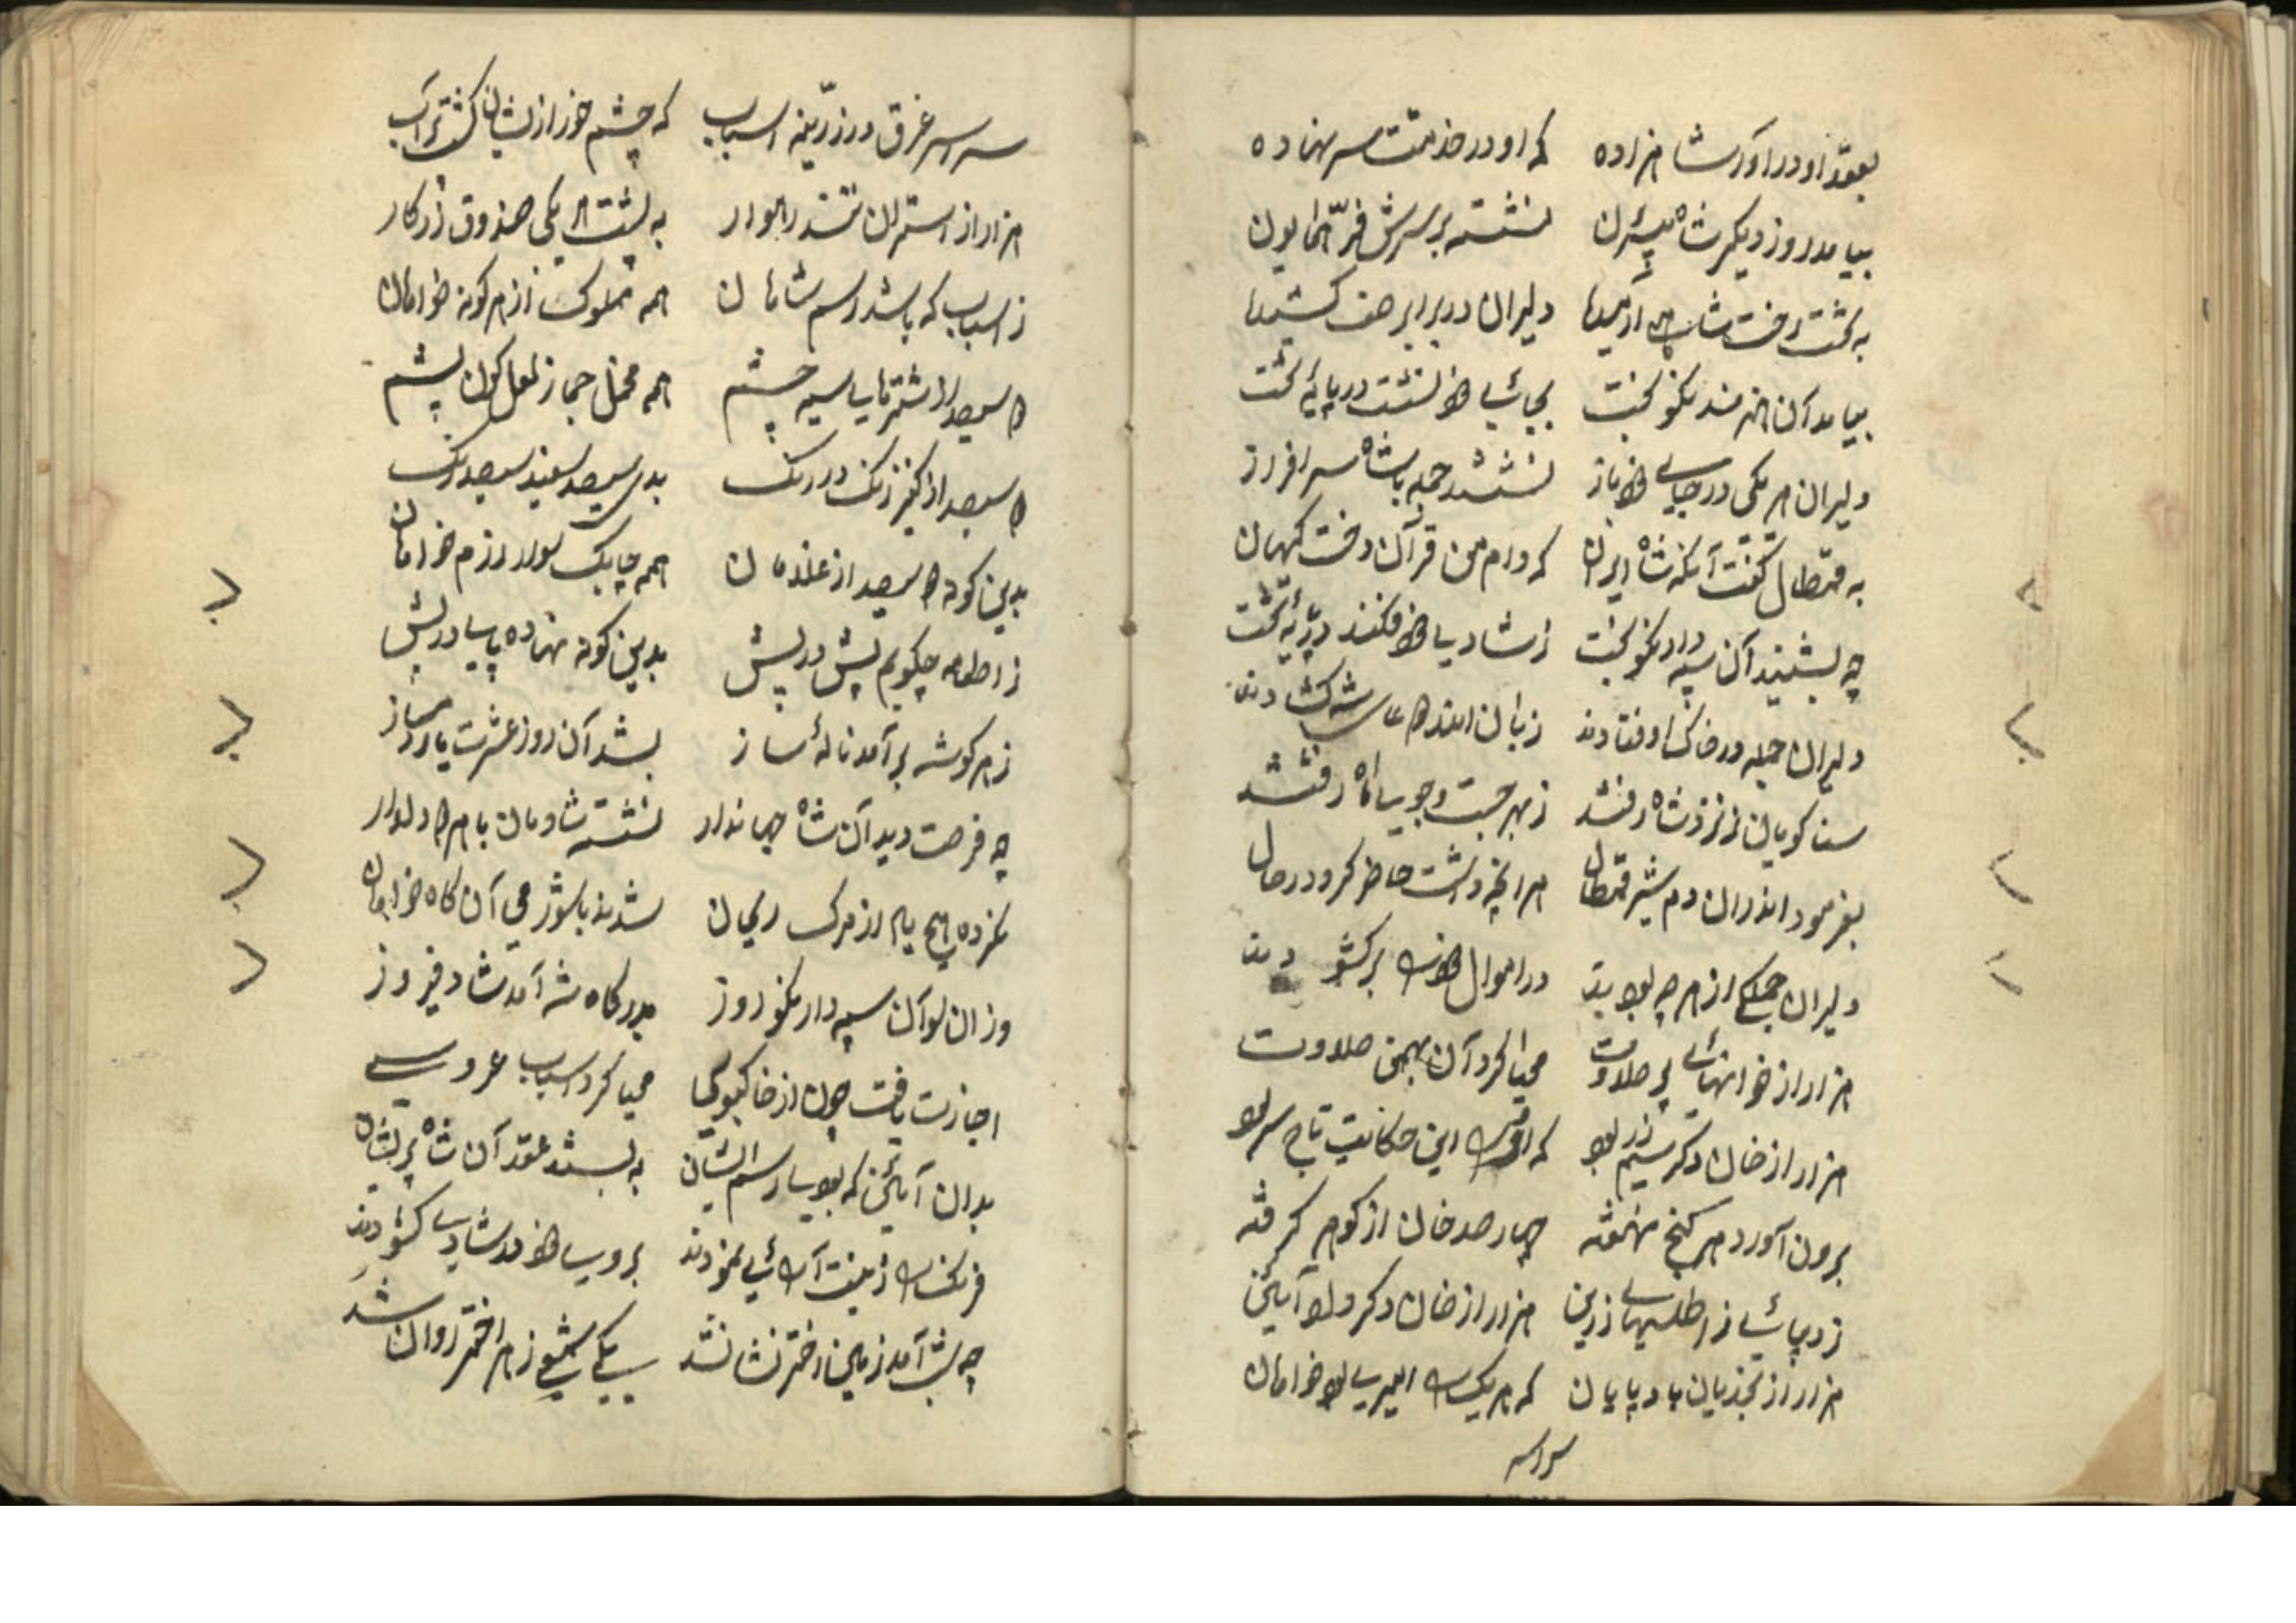 بعقد او در آور شاهزاده که او در خدمتت سر نهاده
بیامد روز دیگر شاه بیرون نشسته بر سرش فرّ همایون
به تخت رفت شاه دلیران در برابر صف کشیدها
بیامد آن هنرمند نکوبخت بجای خود نشست در پایه تخت
دلیران هر یکی در جای خود باز نشستند جمله با شاه سرافراز
به قنطال گفت آنکه شاه ایران که دارم من قرآن دخت کیهان
چه بشنید آن سپه دار نکوبخت ز شادی خود فکند در پایه تخت
دلیران جمله در خاک اوفتادند زبان اندر دعای شه گشادند
سنا گویان ز نزد شاه رفتند ز بهر جست وجوی ماه رفتند
بفرمود اندران دم شیر قنطال هر آنچه داشت حاضر کرد در حال
دلیران جملگی از هر چه بودند در اموال خود را برگشودند
هزار از خوانهای پر حلاوت مهیا کرد آن بهمن صلاوت
هزار از خوان دگر سیم و زر بود که این حکایت تاج سر بود
برون آورد هر گنج نهفته چهار صد خوان از گوهر گرفته
ز دیبای ز اطلسهای زرین هزار از خوان دگر
هزار از تجذیان باد پایان که هر یک را امیری بود خرامان
سراسر
سراسر غرق در زرّینه اسباب که چشم خور از ایشان گشت پرآب
هزار از استران تند رهوار به پشت هر یکی صندوق زرکار
ز اسباب که باشد رسم شاهان همه مملوک از هر گونه خرامان
دو سیصد اشترهای سیه چشم همه محمل جهاز لعل گون پشم
دو سیصد از کنیز زنگ در رنگ بدی سیصد سفید سیصد زنگ
بدین گونه دو سیصد از غلامان همه چابک سوار رزم خرامان
ز اطعامه چگویم پیش در پیش بدین گونه نهاده بیا در پیش
ز هر گوشه برآمد ناله ساز بشد آن روز عشرت
چه فرصت دید آن شاه جهاندار نشسته شادمان با هر دو دلدار
نکرده هیچ یاد از مرگ شدند با شور می آن گاه خرامان
وزان سو آن سپه دار نکوروز بدرگاه شه آمد شاد فیروز
اجازت یافت چون از خاکبوسی مهیا کرد اسباب عروسی
بدان آئین که بود رسم ایشان به بستند عقد آن شاه پریشان
فرنگ را زینت آرائی نمودند بروی خود در شادی گشودند
چه شب آمد زمین اختر نشان شد یکی شمع ز هر اختر روان شد